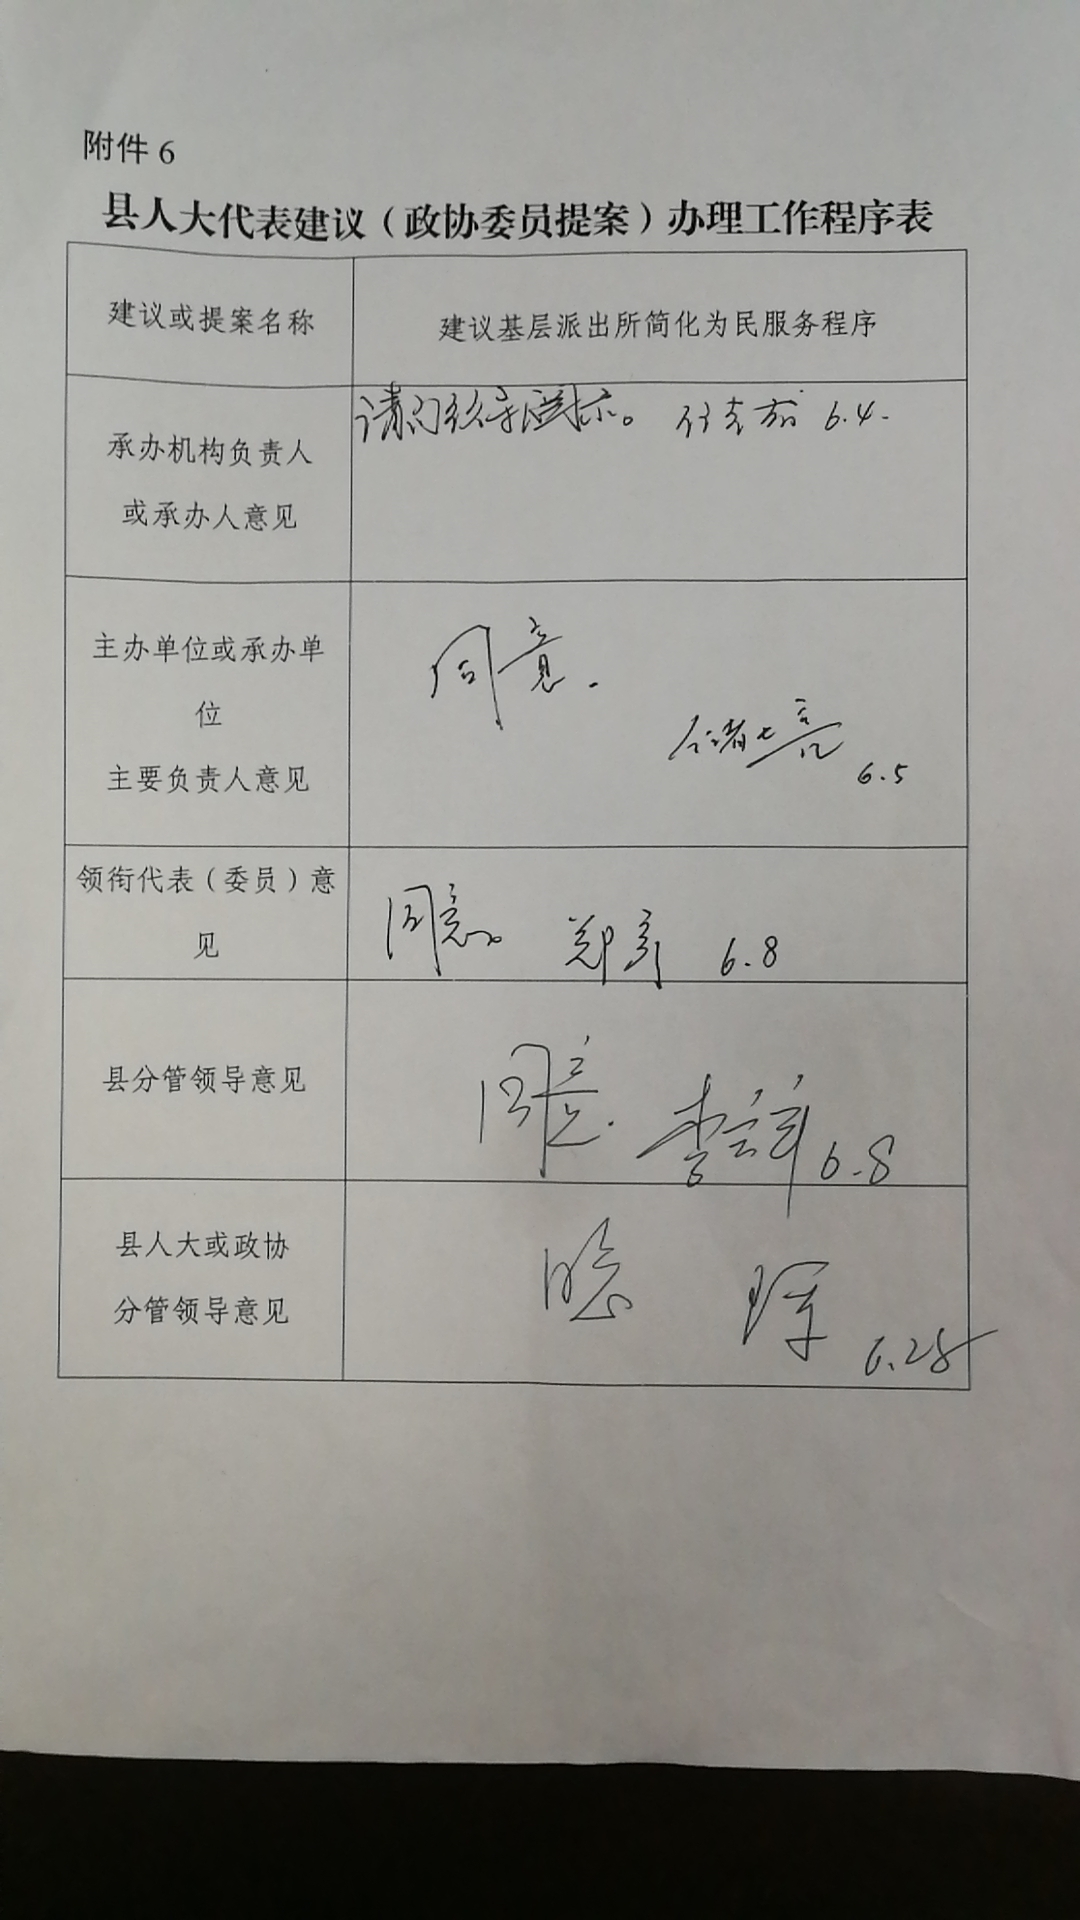 附件6
县人大代表建议（政协委员提案）办理工作程序表
建议或提案名称
建议基层派出所简化为民服务程序
承办机构负责人
或承办人意见
请 示。 6.4.
主办单位或承办单
位
主要负责人意见
同意.
6.5
领衔代表（委员）意
见
同意。 郑彦 6.8
县分管领导意见
同意. 李 6.8
县人大或政协
分管领导意见
同意
6.25